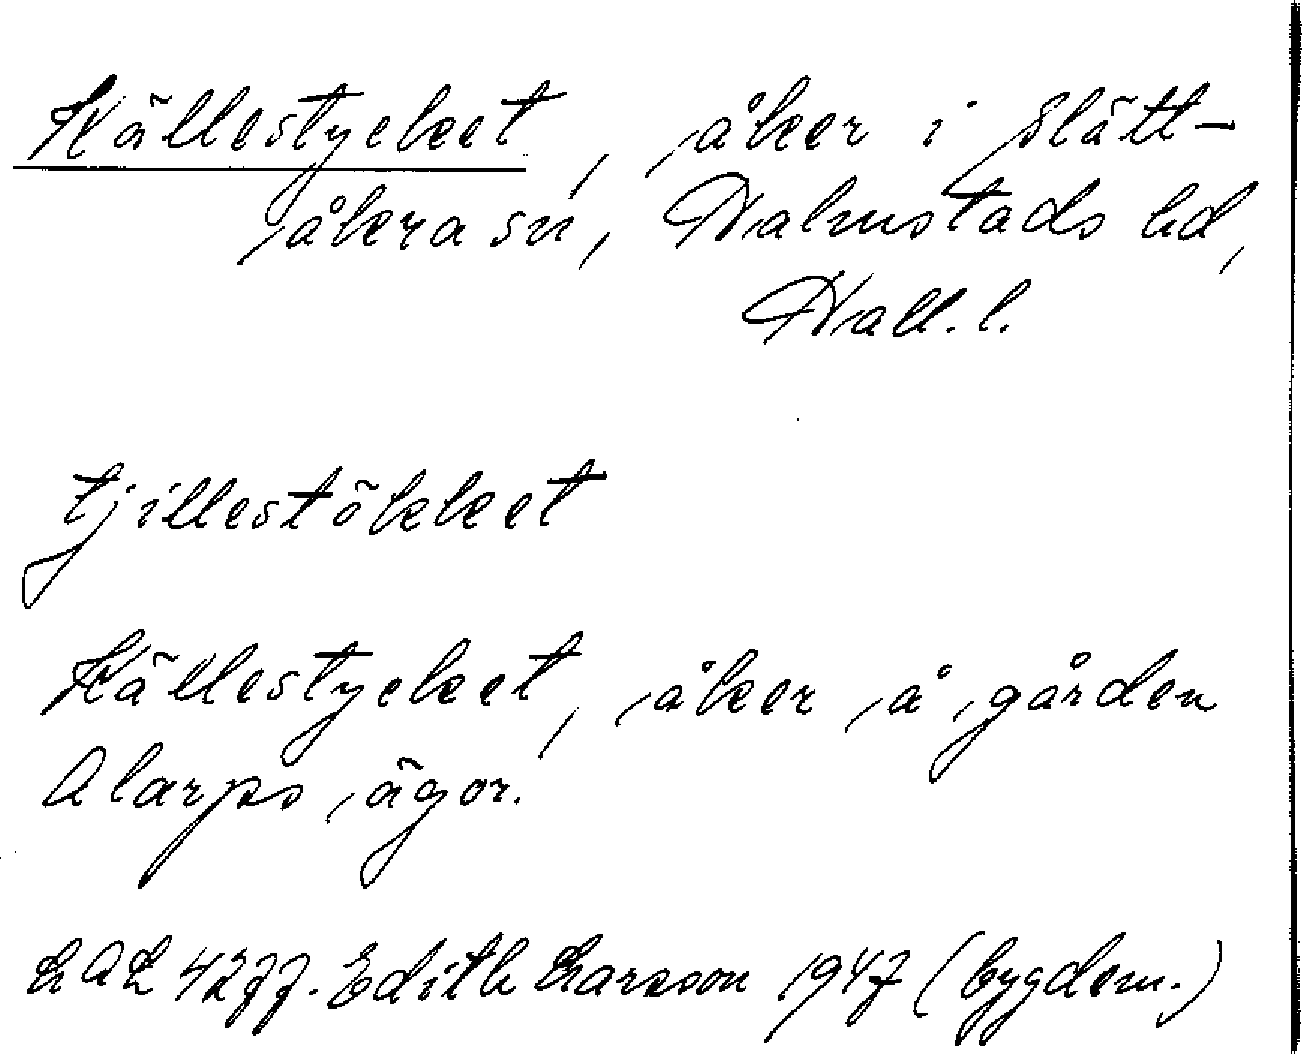 Källestycket, åker i Slätt-
åkra sn, Halmstads hd,
Hall. l.
tjillestökket
Källestycket, åker å gården
Alarps ägor.
LAL 4277. Edith Larsson 1947 (bygdem.)